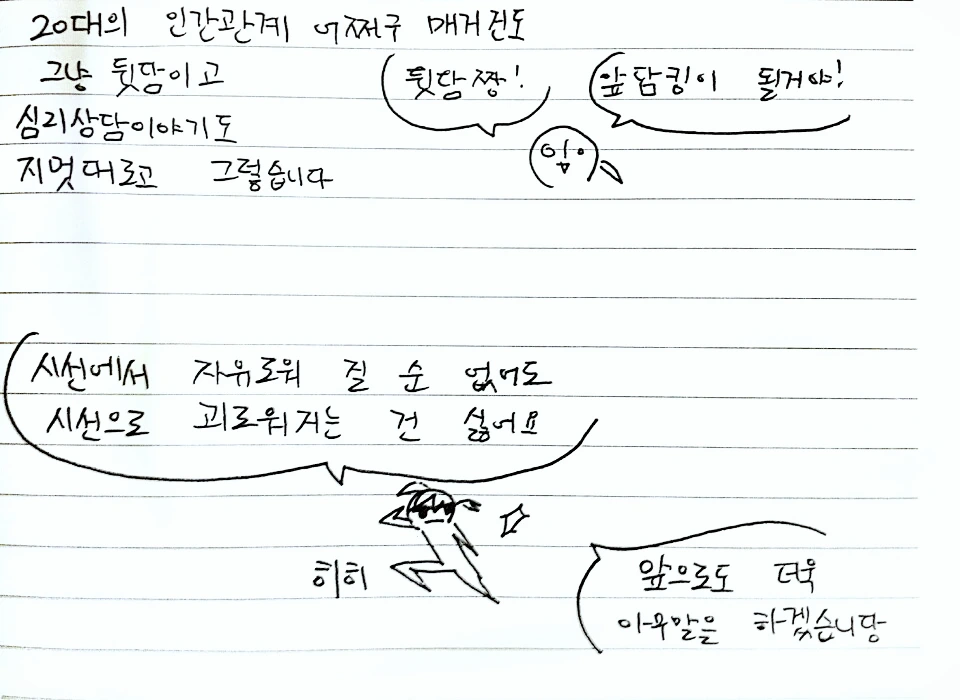 20대의 인간관계 어쩌구 매거진도
그냥 뒷담이고
심리상담이야기도
지멋대로고 그렇습니다
뒷담짱!
앞담킹이 될거야!
시선에서 자유로워 질 순 없어도
시선으로 괴로워지는 건 싫어요
히히
앞으로도 더욱
아무말을 하겠습니당